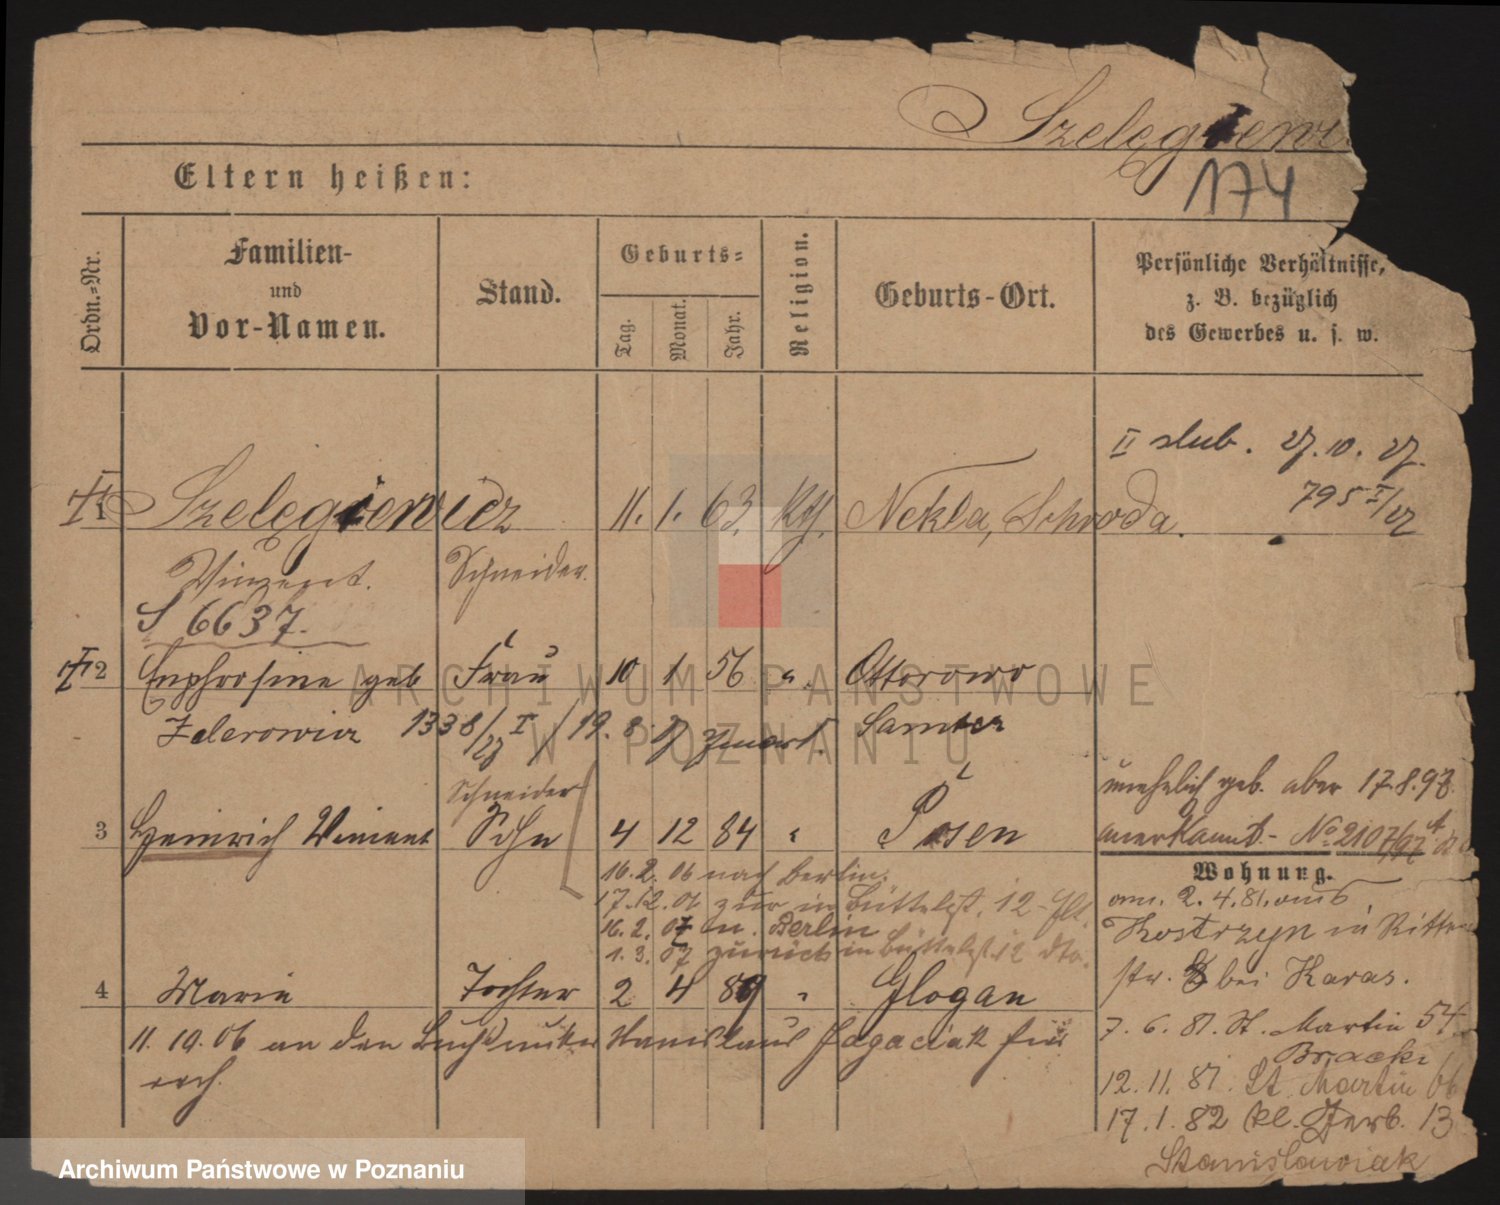 Szelęgiewi
174
Eltern heißen:
Ordn.-Nr.
Familien-
und
Vor-Namen.
Stand.
Geburts-
Tag.
Monat.
Jahr.
Religion.
Geburts-Ort.
Persönliche Verhältnisse,
z. B. bezüglich
des Gewerbes u. s. w.
II slub. 27. 10. 27.
795 I/27
1 Szelęgiewicz 11. 1. 63. Kth. Nekla, Schroda.
Vinzent. Schneider.
S 6637.
2 Euphrosine geb Frau 10 1 56 Ottorowo
1338/27 I / 19. 8. 27 Samter
Schneider
3 Heinrich Vincent Sohn 4 12 84 Posen
unehelich geb. aber 17.8.97
anerkannt - No 2107/97
16.2.06 nach Berlin.
17.12.06 zur in Büttelst. 12
16.2.07 n. Berlin
1.3.07 zurück in Büttelst. 12 dto.
4 Marie Tochter 2 4 89 Glogau
11. 10. 06 an den Buchdrucker Stanislaus Jagaciak
Wohnung.
am. 2. 4. 81. aus
Kostrzyn in Ritter
str. bei Karas.
7. 6. 81. St. Martin 57
12. 11. 81. St Martin 66
17. 1. 82 kl. Gerb. 13
Stanislawiak
ARCHIWUM PAŃSTWOWE
W POZNANIU
Archiwum Państwowe w Poznaniu